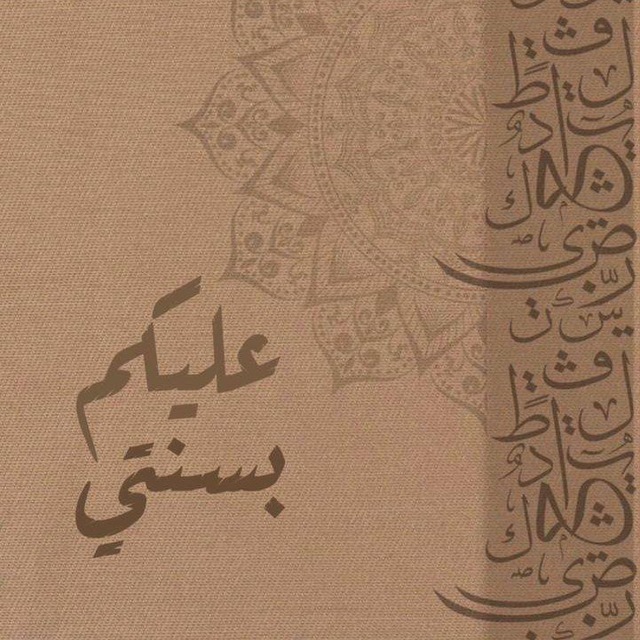 عليكم
بسنتي